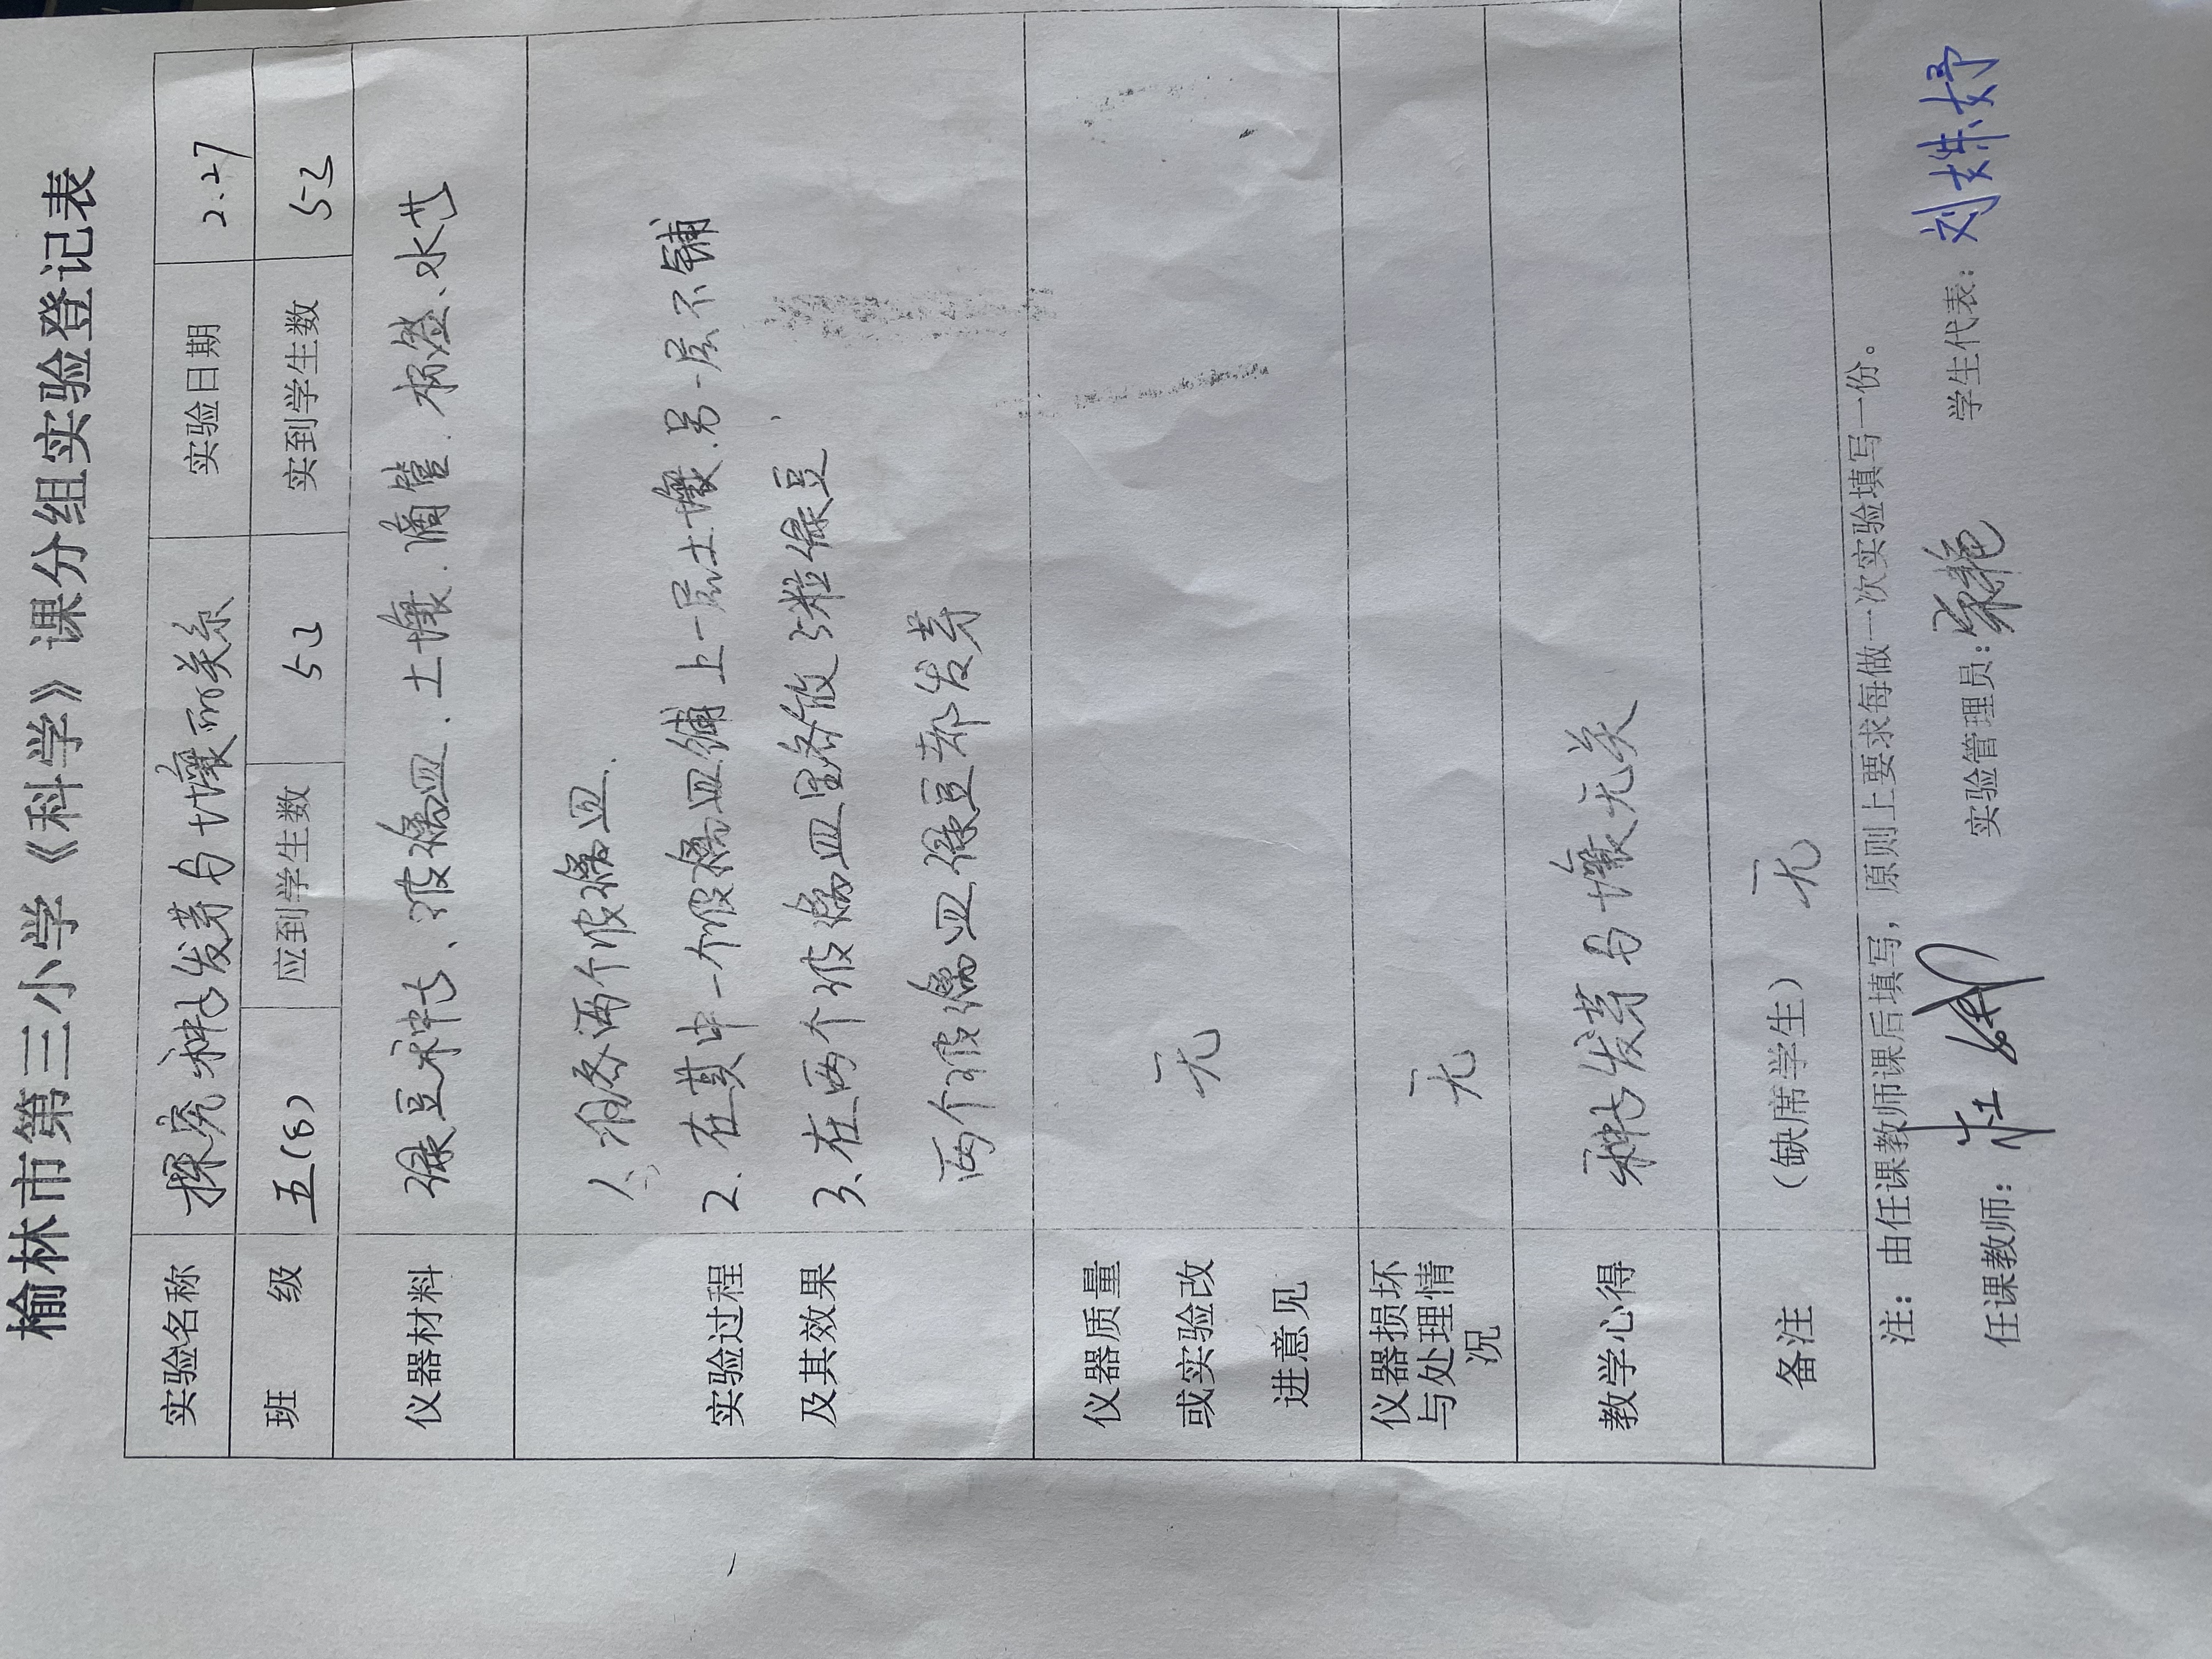 榆林市第三小学《科学》课分组实验登记表
实验名称 探究种子发芽与土壤的关系 实验日期 2.27
班 级 五(8) 应到学生数 52 实到学生数 52
仪器材料 绿豆种子、玻璃皿、土壤、滴管、标签、水等
1、准备两个玻璃皿.
实验过程 2、在其中一个玻璃皿铺上一层土壤,另一层不铺
及其效果 3、在两个玻璃皿里各放5粒绿豆
两个玻璃皿绿豆都发芽
仪器质量
或实验改 无
进意见
仪器损坏
与处理情 无
况
教学心得 种子发芽与土壤无关
备注 (缺席学生) 无
注：由任课教师课后填写，原则上要求每做一次实验填写一份。
任课教师： 实验管理员： 学生代表： 刘姝妤